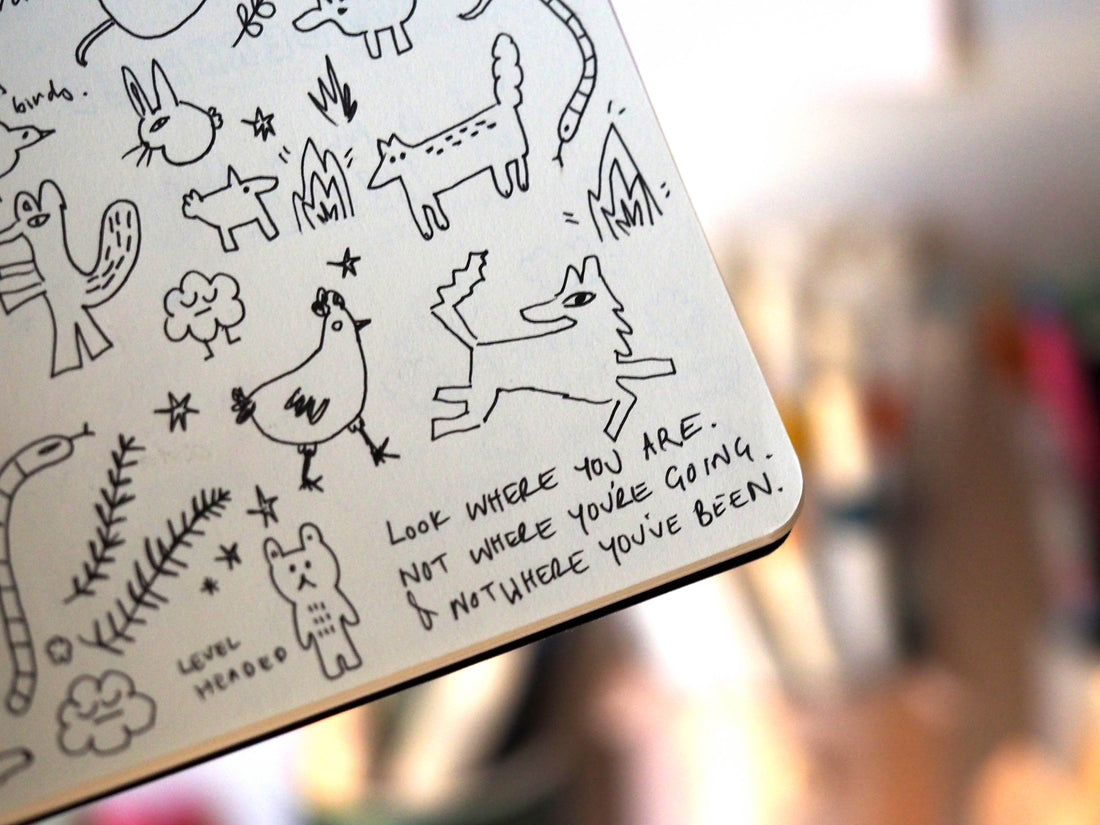 birds.
LOOK WHERE YOU ARE.
NOT WHERE YOU'RE GOING.
& NOT WHERE YOU'VE BEEN.
LEVEL
HEADED